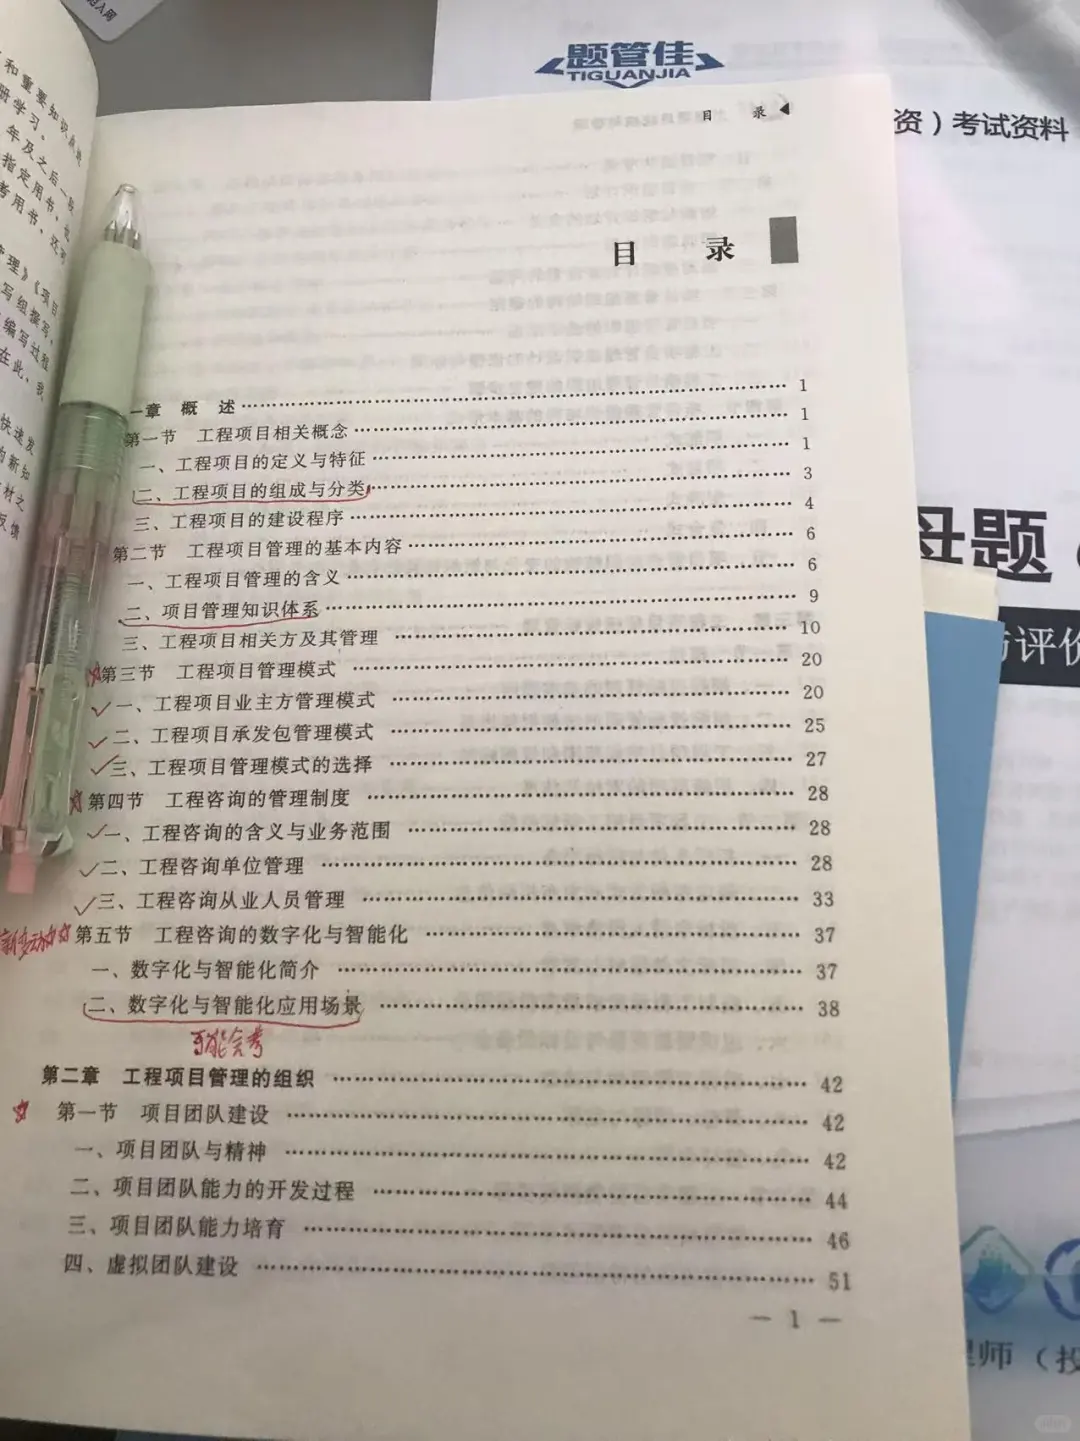 和重要知识点进
册学习。
年及之后一段
指定用书、
考用书，还可
管理》《项目
写组撰写，
编写过程
在此，我
快速发
为新知
材之
反馈
题管佳
TIGUANJIA
资）考试资料
母题
与评价
程师（投
目 录
目 录
一章 概 述 1
第一节 工程项目相关概念 1
一、工程项目的定义与特征 1
二、工程项目的组成与分类 3
三、工程项目的建设程序 4
第二节 工程项目管理的基本内容 6
一、工程项目管理的含义 6
二、项目管理知识体系 9
三、工程项目相关方及其管理 10
第三节 工程项目管理模式 20
一、工程项目业主方管理模式 20
二、工程项目承发包管理模式 25
三、工程项目管理模式的选择 27
第四节 工程咨询的管理制度 28
一、工程咨询的含义与业务范围 28
二、工程咨询单位管理 28
三、工程咨询从业人员管理 33
第五节 工程咨询的数字化与智能化 37
一、数字化与智能化简介 37
二、数字化与智能化应用场景 38
可能会考
第二章 工程项目管理的组织 42
第一节 项目团队建设 42
一、项目团队与精神 42
二、项目团队能力的开发过程 44
三、项目团队能力培育 46
四、虚拟团队建设 51
— 1 —